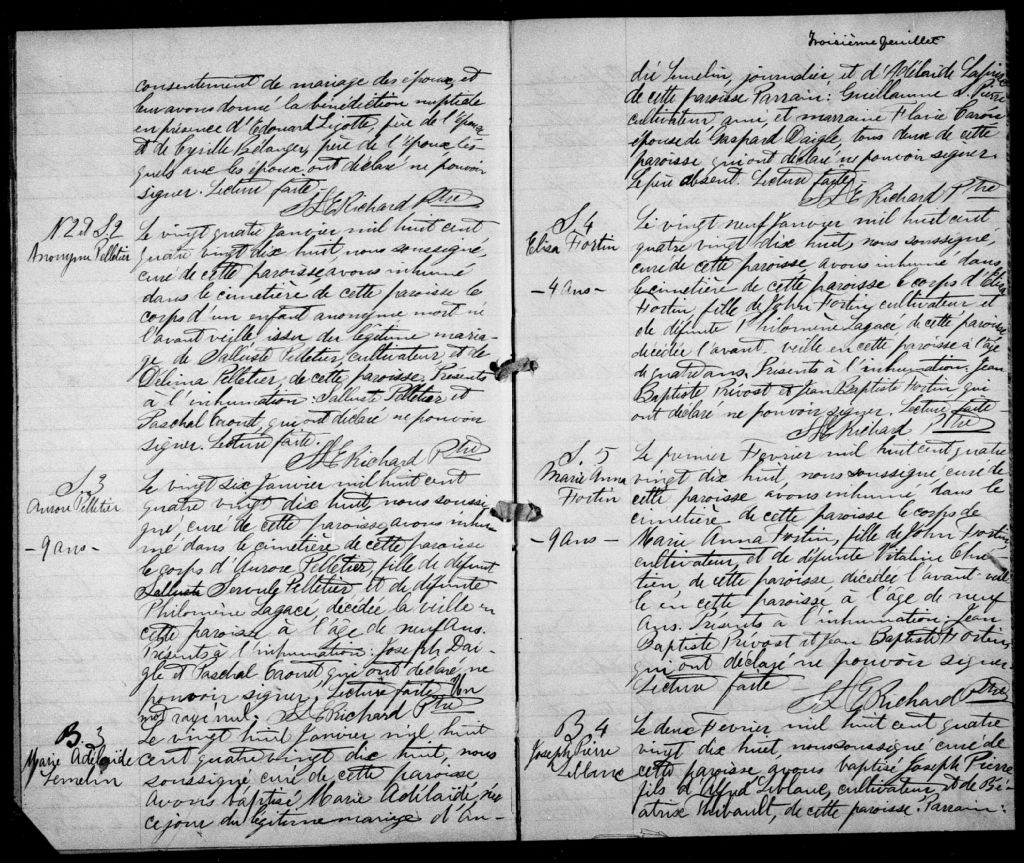 consentement de mariage des époux, et
leur avons donné la bénédiction nuptiale
en présence d'Edouard Lizotte, père de l'épouse
et de Cyrille Bélanger, frère de l'époux les-
quels avec les époux, ont déclaré ne pouvoir
signer. Lecture faite.
Richard Ptre
N 2 et S. 2
Anonyme Pelletier
Le vingt quatre Janvier mil huit cent
quatre vingt dix huit, nous soussigné,
curé de cette paroisse, avons inhumé
dans le cimetière de cette paroisse le
corps d'un enfant anonyme mort né
l'avant veille issu du légitime maria-
ge de Salluste Pelletier, cultivateur, et de
Délima Pelletier, de cette paroisse. Présents
à l'inhumation: Salluste Pelletier et
Paschal Caouet, qui ont déclaré ne pouvoir
signer. Lecture faite.
Richard Ptre
S. 3
Aurore Pelletier
- 9 ans -
Le vingt six Janvier mil huit cent
quatre vingt dix huit, nous soussi-
gné, curé de cette paroisse, avons inhu-
mé dans le cimetière de cette paroisse
le corps d'Aurore Pelletier, fille de défunt
Salluste Servule Pelletier, et de défunte
Philomène Lagacé, décédée la veille en
cette paroisse à l'âge de neuf ans.
Présents à l'inhumation: Joseph Dai-
gle et Paschal Caouet, qui ont déclaré ne
pouvoir signer. Lecture faite. Un
mot rayé nul. Richard Ptre
B. 3
Marie Adélaïde
Lemelin
Le vingt huit Janvier mil huit
cent quatre vingt dix huit, nous
soussigné curé de cette paroisse
avons baptisé Marie Adélaïde, née
ce jour du légitime mariage d'An-
Troisième feuillet
dré Lemelin, journalier, et d'Adélaïde
de cette paroisse. Parrain: Guillaume St Pierre
cultivateur et marraine Flavie Caron
épouse de Gaspard Daigle, tous deux de cette
paroisse qui ont déclaré ne pouvoir signer.
Le père absent. Lecture faite.
Richard Ptre
S. 4
Elisa Fortin
- 4 ans -
Le vingt neuf Janvier mil huit cent
quatre vingt dix huit, nous soussigné,
curé de cette paroisse avons inhumé dans
le cimetière de cette paroisse le corps d'Elisa
Fortin, fille de John Fortin, cultivateur et
de défunte Philomène Lagacé, de cette paroisse,
décédée l'avant-veille en cette paroisse à l'âge
de quatre ans. Présents à l'inhumation, Jean
Baptiste Prévost et Jean Baptiste Fortin qui
ont déclaré ne pouvoir signer. Lecture faite
Richard Ptre
S. 5
Marie Anna
Fortin
- 9 ans -
Le premier Février mil huit cent quatre
vingt dix huit, nous soussigné, curé de
cette paroisse avons inhumé dans le
cimetière de cette paroisse le corps de
Marie Anna Fortin, fille de John Fortin
cultivateur, et de défunte Vitaline Chré-
tien de cette paroisse décédée l'avant-veil-
le en cette paroisse à l'âge de neuf
ans. Présents à l'inhumation: Jean
Baptiste Prévost et Jean Baptiste Fortin,
qui ont déclaré ne pouvoir signer.
Lecture faite
Richard Ptre
B. 4
Joseph Pierre
Leblanc
Le deux Février mil huit cent quatre
vingt dix huit, nous soussigné curé de
cette paroisse avons baptisé Joseph Pierre
fils d'Leblanc, cultivateur, et de Bé-
atrix Thibault, de cette paroisse. Parrain: